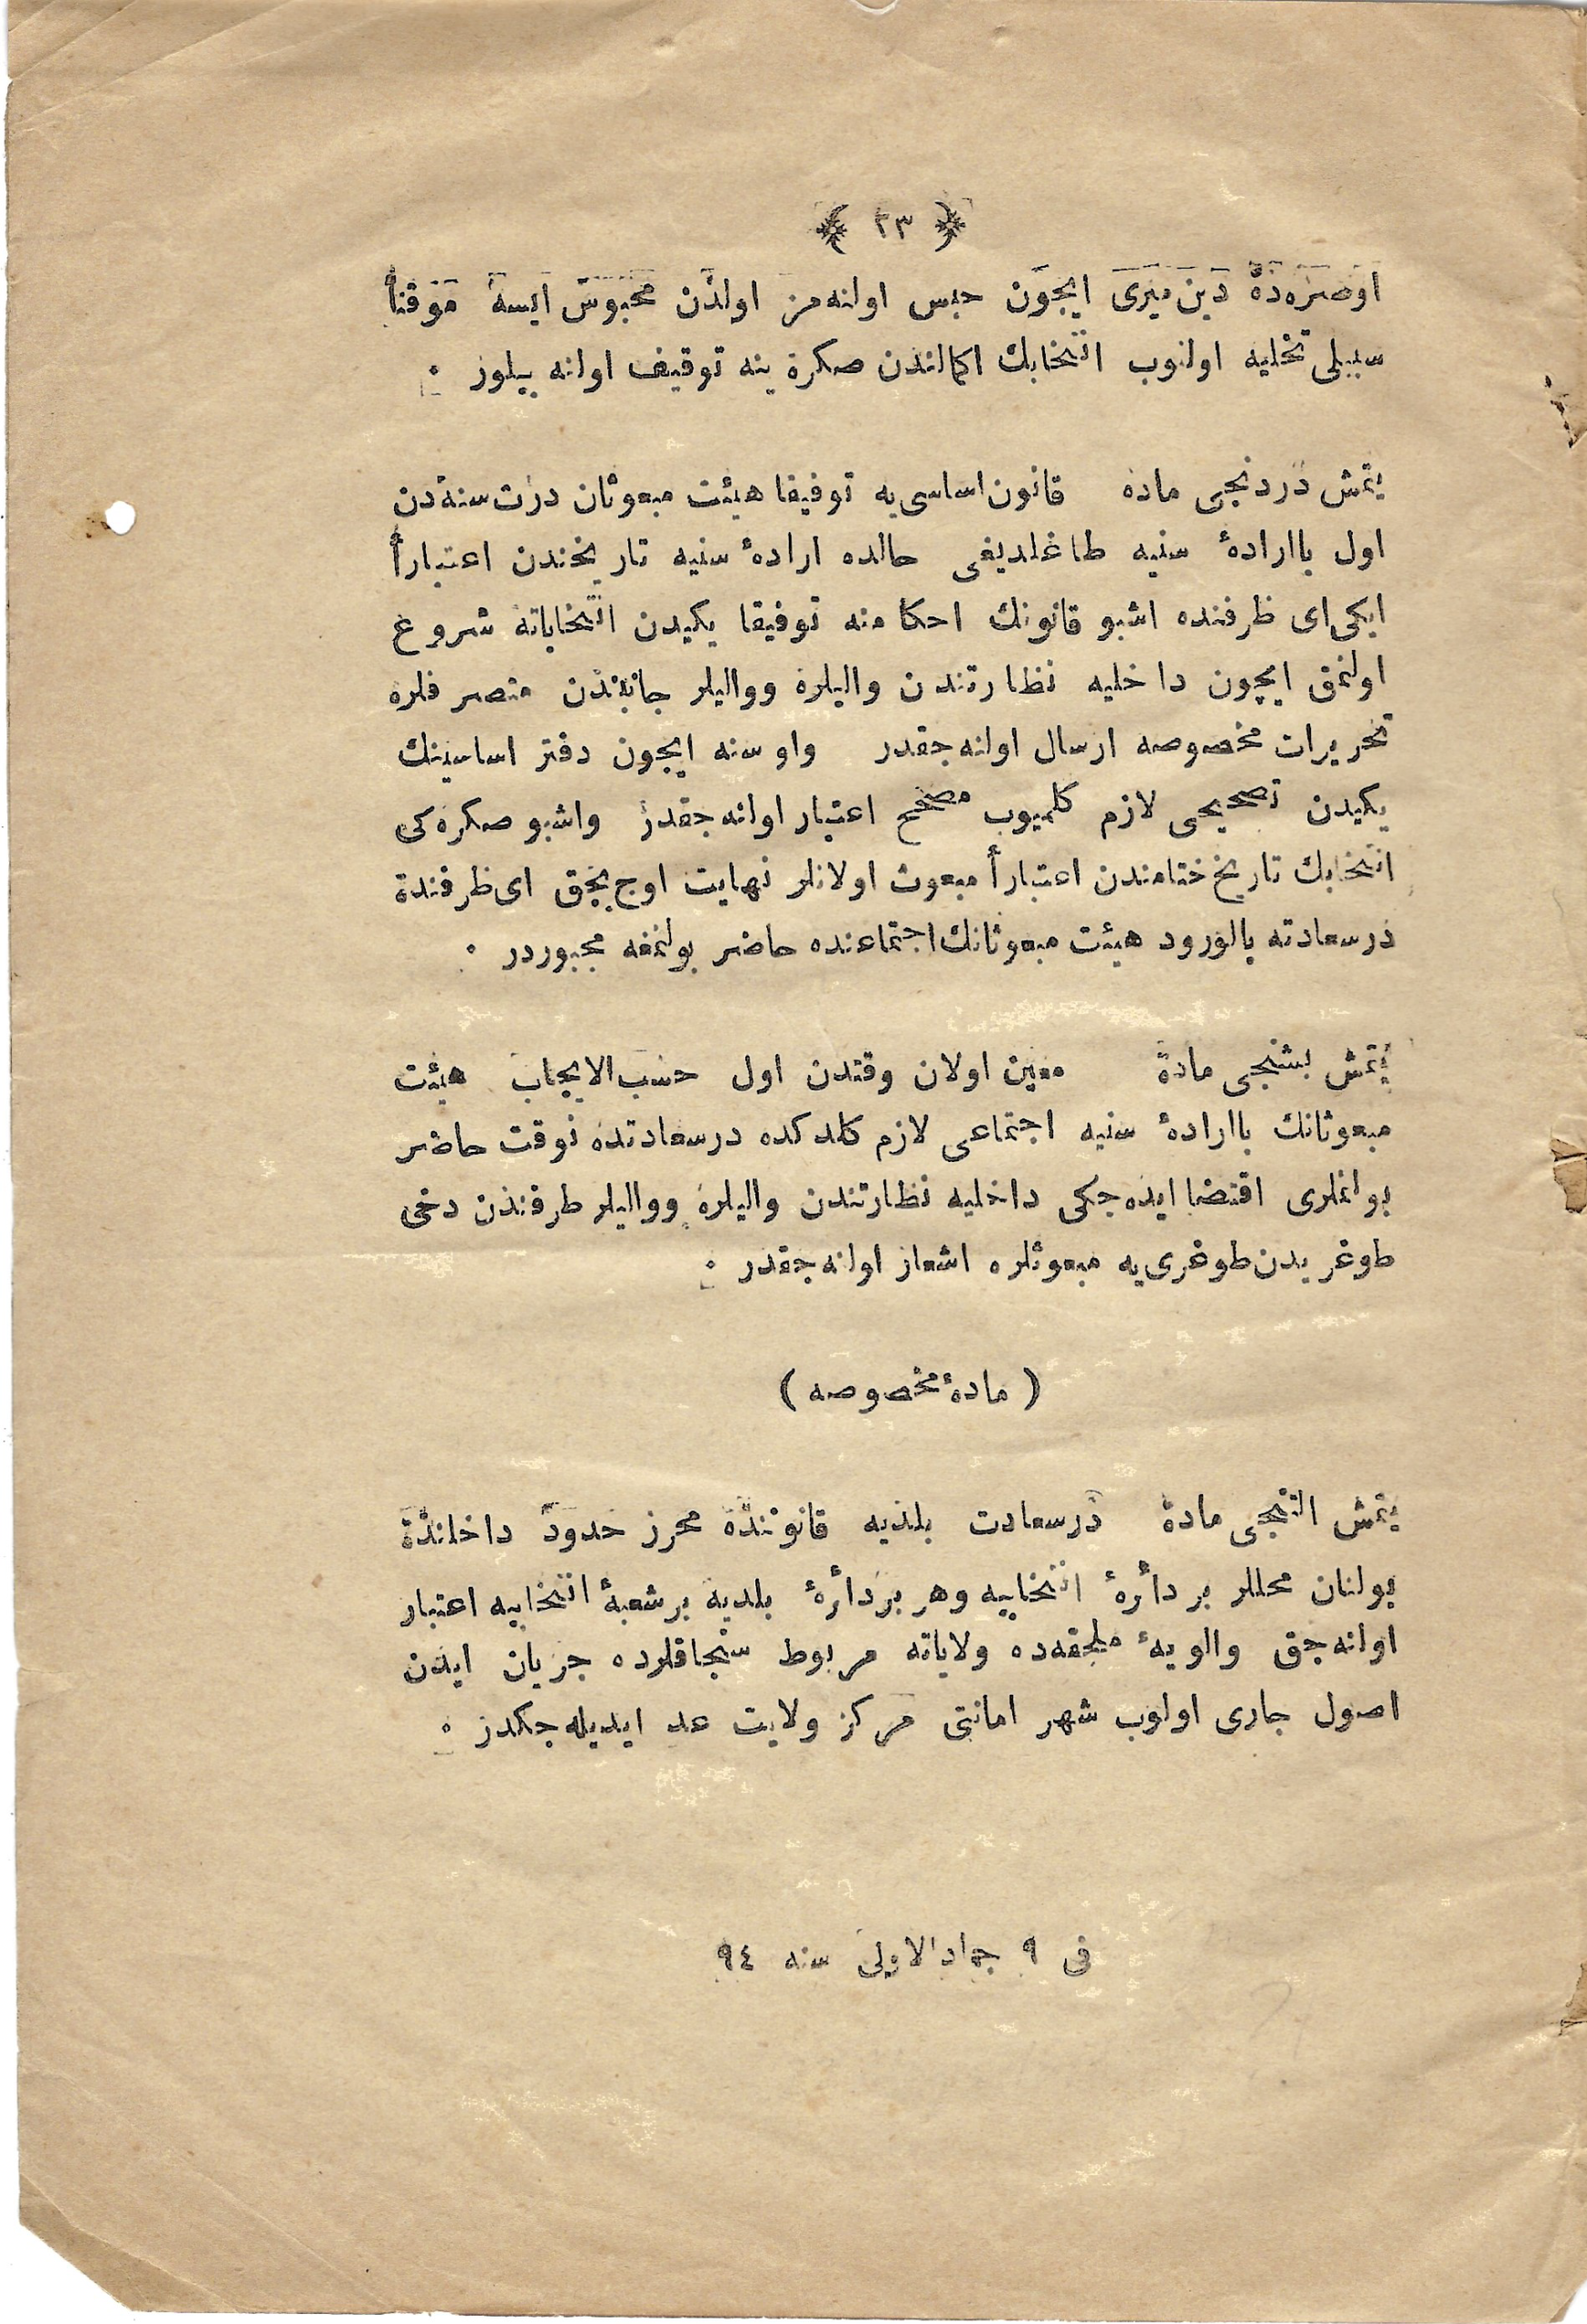 ﴿ ٢٣ ﴾
اوصره‌ده دين ميرى ايچون حبس اولنه‌مز اولدن محبوس ايسه موقتاً
سبيلى تخليه اولنوب انتخابك اكمالندن صكره ينه توقيف اولنه بيلور .
يتمش دردنجى ماده قانون اساسى‌يه توفيقا هيئت مبعوثان درت سنه‌دن
اول باارادهٔ سنيه طاغلديغى حالده ارادهٔ سنيه تاريخندن اعتباراً
ايكى اى ظرفنده اشبو قانونك احكامنه توفيقا يكيدن انتخاباته شروع
اولنمق ايچون داخليه نظارتندن واليلره وواليلر جانبندن متصرفلره
تحريرات مخصوصه ارسال اولنه‌جقدر واو سنه ايچون دفتر اساسينك
يكيدن تصحيحى لازم كلميوب مصحح اعتبار اولنه‌جقدر واشبو صكره‌كى
انتخابك تاريخ ختامندن اعتباراً مبعوث اولانلر نهايت اوج بچق اى ظرفنده
درسعادته بالورود هيئت مبعوثانك اجتماعنده حاضر بولنمغه مجبوردر .
يتمش بشنجى ماده معين اولان وقتدن اول حسب‌الايجاب هيئت
مبعوثانك باارادهٔ سنيه اجتماعى لازم كلدكده درسعادتده نوقت حاضر
بولنملرى اقتضا ايده‌جكى داخليه نظارتندن واليلره وواليلر طرفندن دخى
طوغريدن طوغرى‌يه مبعوثلره اشعار اولنه‌جقدر .
( مادهٔ مخصوصه )
يتمش التنجى ماده درسعادت بلديه قانوننده محرر حدود داخلنده
بولنان محللر بر دائرهٔ انتخابيه وهر بر دائرهٔ بلديه بر شعبهٔ انتخابيه اعتبار
اولنه‌جق والويهٔ ملحقه‌ده ولاياته مربوط سنجاقلرده جريان ايدن
اصول جارى اولوب شهر امانتى مركز ولايت عد ايديله‌جكدر .
فى ٩ جماد الاولى سنه ٩٤